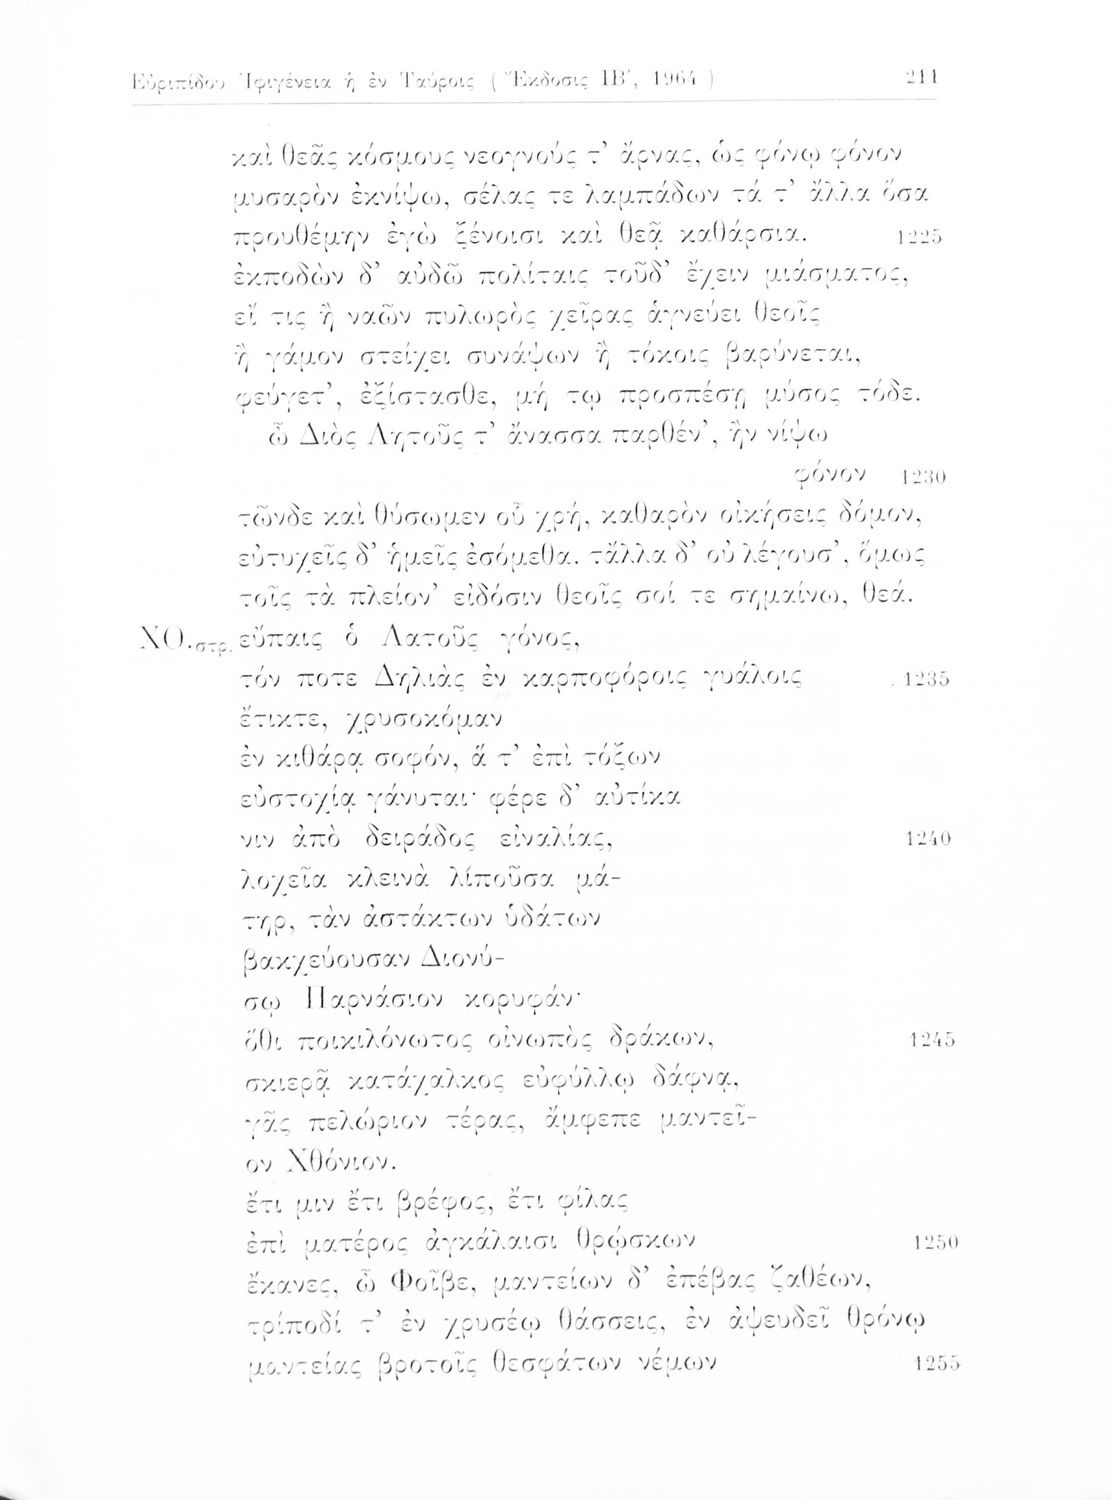 Εὐριπίδου Ἰφιγένεια ἡ ἐν Ταύροις ( Ἔκδοσις ΙΒ΄, 1964 ) 211
καὶ θεᾶς κόσμους νεογνούς τ’ ἄρνας, ὡς φόνῳ φόνον
μυσαρὸν ἐκνίψω, σέλας τε λαμπάδων τά τ’ ἄλλα ὅσα
προυθέμην ἐγὼ ξένοισι καὶ θεᾷ καθάρσια. 1225
ἐκποδὼν δ’ αὐδῶ πολίταις τοῦδ’ ἔχειν μιάσματος,
εἴ τις ἢ ναῶν πυλωρὸς χεῖρας ἁγνεύει θεοῖς
ἢ γάμον στείχει συνάψων ἢ τόκοις βαρύνεται,
φεύγετ’, ἐξίστασθε, μή τῳ προσπέσῃ μύσος τόδε.
ὦ Διὸς Λητοῦς τ’ ἄνασσα παρθέν’, ἢν νίψω
φόνον 1230
τῶνδε καὶ θύσωμεν οὗ χρή, καθαρὸν οἰκήσεις δόμον,
εὐτυχεῖς δ’ ἡμεῖς ἐσόμεθα. τἄλλα δ’ οὐ λέγουσ’, ὅμως
τοῖς τὰ πλείον’ εἰδόσιν θεοῖς σοί τε σημαίνω, θεά.
ΧΟ.στρ. εὔπαις ὁ Λατοῦς γόνος,
τόν ποτε Δηλιὰς ἐν καρποφόροις γυάλοις 1235
ἔτικτε, χρυσοκόμαν
ἐν κιθάρᾳ σοφόν, ἅ τ’ ἐπὶ τόξων
εὐστοχίᾳ γάνυται· φέρε δ’ αὐτίκα
νιν ἀπὸ δειράδος εἰναλίας, 1240
λοχεῖα κλεινὰ λιποῦσα μά-
τηρ, τὰν ἀστάκτων ὑδάτων
βακχεύουσαν Διονύ-
σῳ Παρνάσιον κορυφάν·
ὅθι ποικιλόνωτος οἰνωπὸς δράκων, 1245
σκιερᾷ κατάχαλκος εὐφύλλῳ δάφνᾳ,
γᾶς πελώριον τέρας, ἄμφεπε μαντεῖ-
ον Χθόνιον.
ἔτι μιν ἔτι βρέφος, ἔτι φίλας
ἐπὶ ματέρος ἀγκάλαισι θρῴσκων 1250
ἔκανες, ὦ Φοῖβε, μαντείων δ’ ἐπέβας ζαθέων,
τρίποδί τ’ ἐν χρυσέῳ θάσσεις, ἐν ἀψευδεῖ θρόνῳ
μαντείας βροτοῖς θεσφάτων νέμων 1255